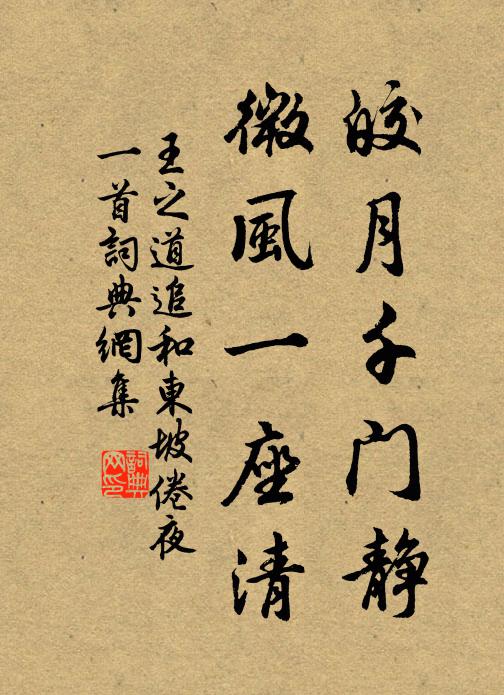 皎月千门静
微風一座清
王之道追和東坡倦夜
一首詞典網集
詞典网印